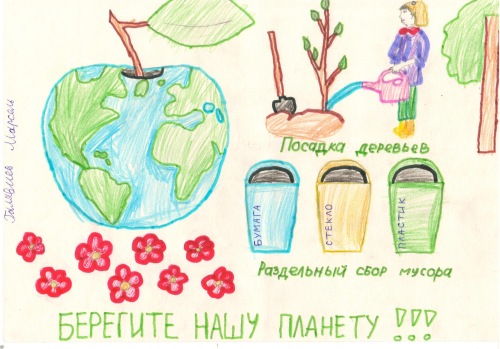 Марсель
Посадка деревьев
БУМАГА
СТЕКЛО
ПЛАСТИК
Раздельный сбор мусора
БЕРЕГИТЕ НАШУ ПЛАНЕТУ !!!